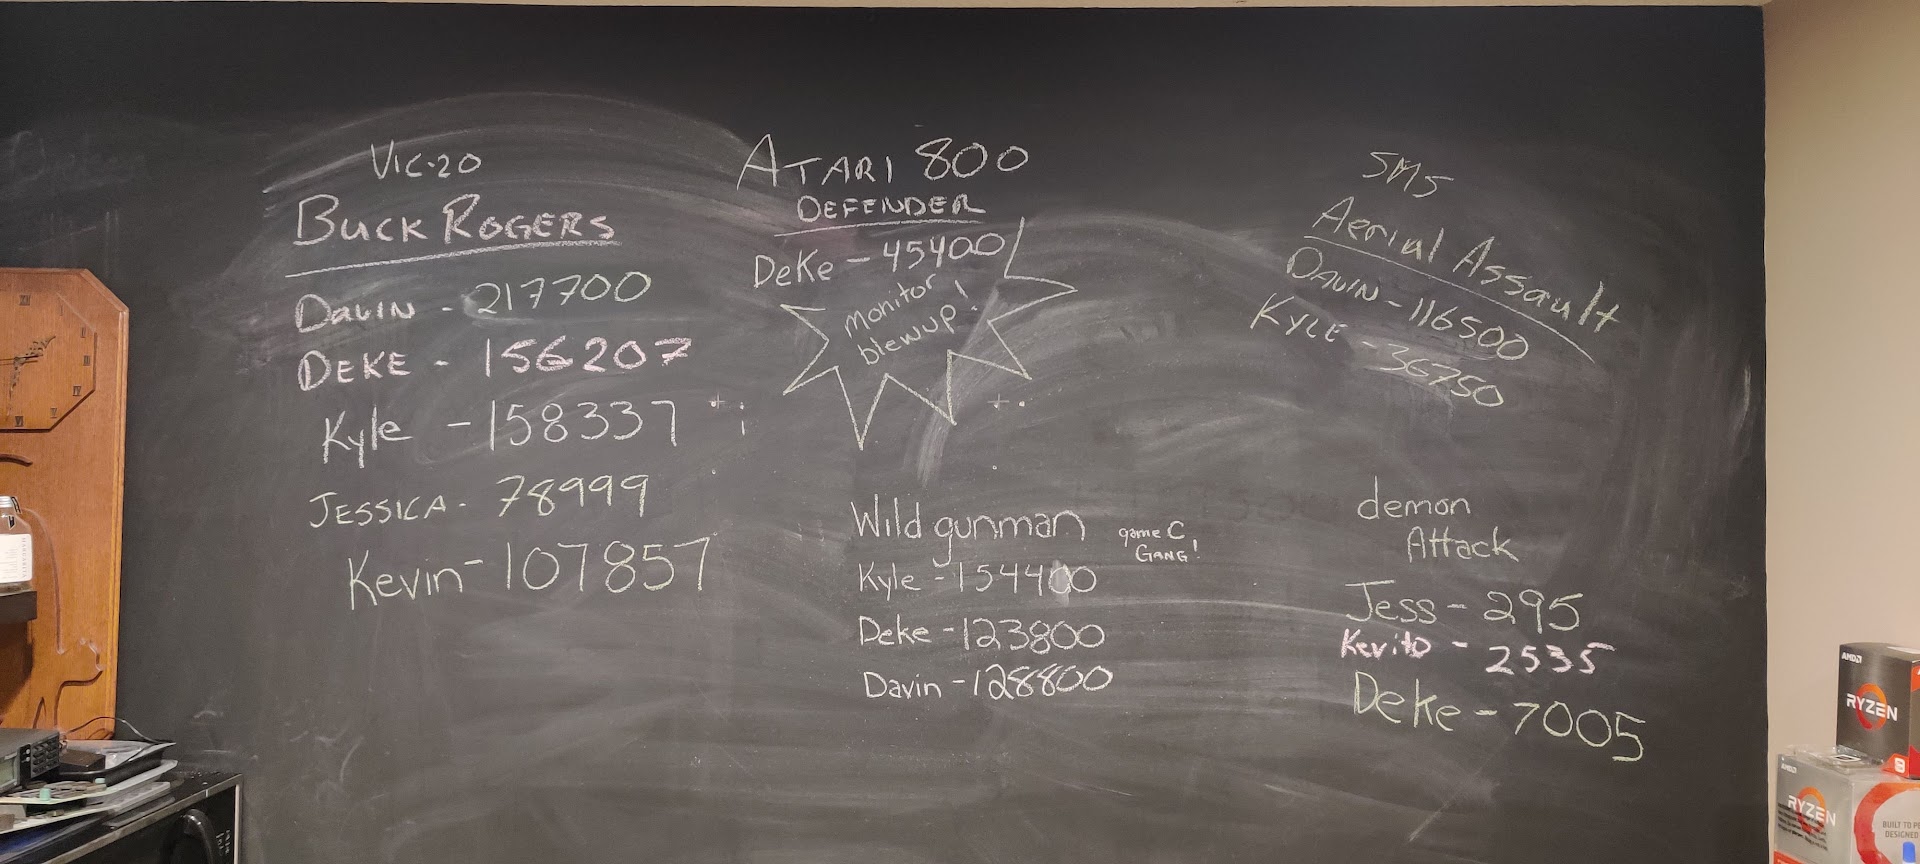 VIC-20
BUCK ROGERS
DAVIN - 217700
DEKE - 156207
Kyle - 158337
JESSICA - 78999
Kevin - 107857
ATARI 800
DEFENDER
DeKe - 45400
Monitor
blewup!
Wild gunman
game C,
GANG!
Kyle - 154400
Deke - 123800
Davin - 128800
SMS
Aerial Assault
DAVIN - 116500
KYLE - 36750
demon
Attack
Jess - 295
Kevito - 2535
Deke - 7005
AMD
RYZEN
AMD
RYZEN
BUILT TO
DESIGNED